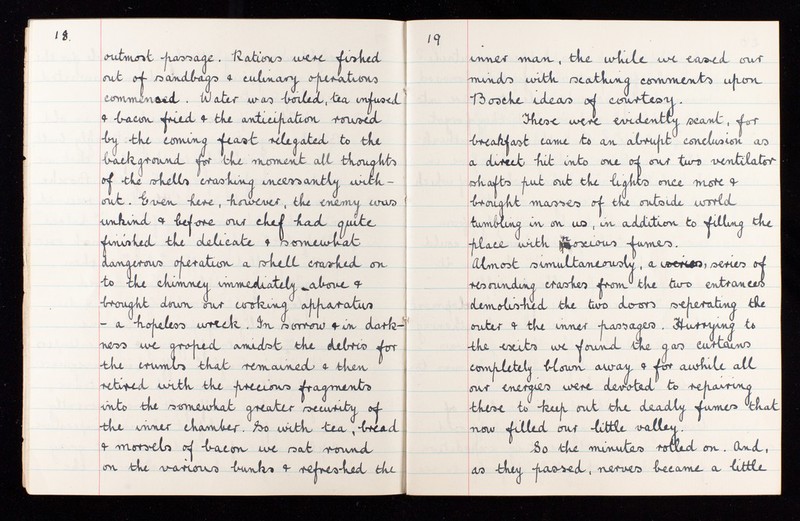 18.
outmost passage. Rations were fished
out of sandbags & culinary operations
commenced. Water was boiled, tea infused
& bacon fried & the anticipation roused
by the coming feast relegated to the
background for the moment all thoughts
of the shells crashing incessantly with-
out. Even here, however, the enemy was
unkind & before our chef had quite
finished the delicate & somewhat
dangerous operation a shell crashed on
to the chimney immediately above &
brought down our cooking apparatus
- a hopeless wreck. In sorrow & in dark-
ness we groped amidst the debris for
the crumbs that remained & then
retired with the precious fragments
into the somewhat greater security of
the inner chamber. So with tea, bread
& morsels of bacon we sat round
on the various bunks & refreshed the
19
inner man, the while we eased our
minds with scathing comments upon
Bosche ideas of courtesy.
These were evidently scant, for
breakfast came to an abrupt conclusion as
a direct hit into one of our two ventilator
shafts put out the lights once more &
brought masses of the outside world
tumbling in on us, in addition to filling the
place with noxious fumes.
Almost simultaneously, a series, series of
resounding crashes from the two entrances
demolished the two doors seperating the
outer & the inner passages. Hurrying to
the exits we found the gas curtains
completely blown away & for awhile all
our energies were devoted to repairing
these to keep out the deadly fumes that
now filled our little valley.
So the minutes rolled on. And,
as they passed, nerves became a little